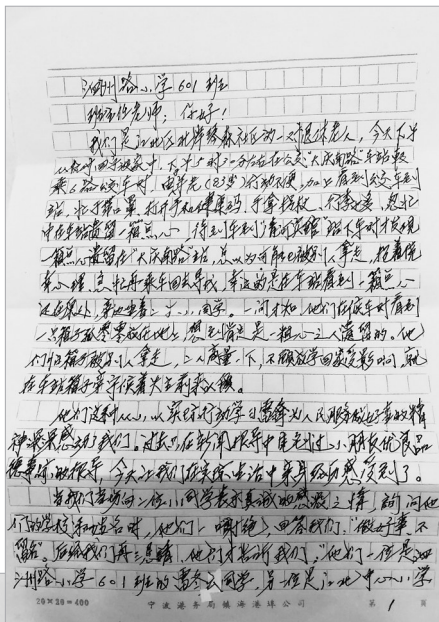 泗洲路小学601班
班主任老师：你好！
我们是江北区北岸绿森社区的一对退休老人，今天下午
下午5时20分左右在公交"大庆南路"车站转
乘6路公交车时，由年老(83岁)行动不便，加上看到公交车到
站，忙于戴口罩，打开手机健康码，手拿拐杖、行李等，忽忙
中在车站遗留一箱点心。待到车到"清河宾馆"站下车时才发现
一箱点心遗留在"大庆南路"站，总以为可能已被别人拿走，抱着侥
幸心理，急忙再乘车回去寻找，幸运的是在车站看到一箱点心
还在原处，旁边坐着二个小同学。一问才知他们在候车时看到
一只箱子孤零零放在地上，想到肯定是一粗心之人遗留的。他
们怕箱子被别人拿走，二人商量一下，不顾放学回家受影响，就
在车站箱子旁守候着失主到来认领。
他们这种从小以实际行动学习雷锋为人民服务做好事的精
神深深感动了我们。过去，在新闻报导中看到过小朋友优良品
德事迹的报导，今天让我们在实际生活中亲身经历感受到了。
当我们当场向二位小同学表示真诚的感激之情，询问他
们的学校和姓名时，他们一口谢绝，回答我们，"做好事不
留名"。后经我们再三恳请，他们才告诉我们，"他们一位是泗
洲路小学601班的同学，另一位是江北中心小学
20×20=400
宁波港务局镇海港埠公司
第 1 页